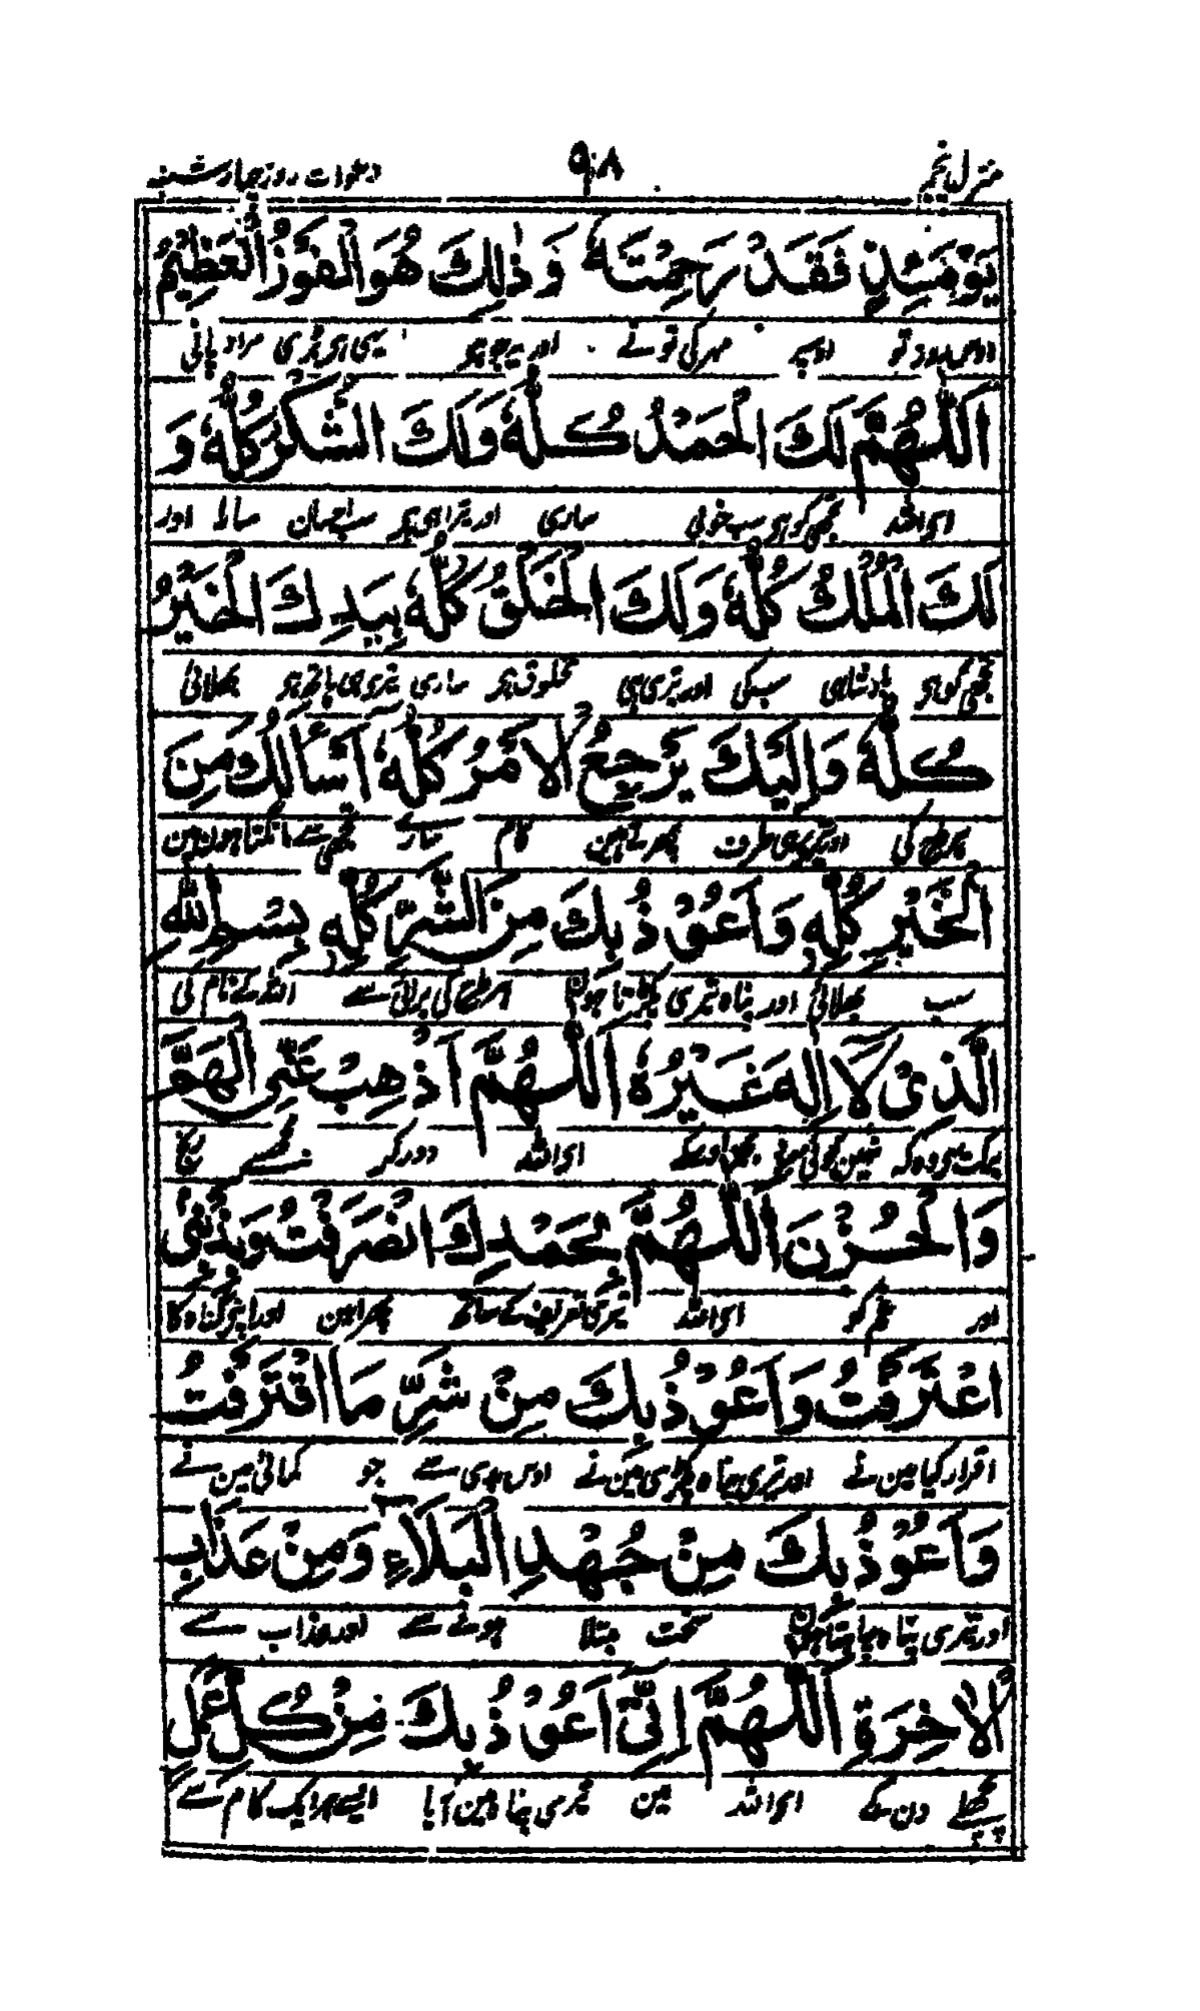 منزل پنجم ۹۸ دعوات روز چہار شنبہ
يَوْمَئِذٍ فَقَدْ رَحِمْتَهٗ وَذٰلِكَ هُوَ الْفَوْزُ الْعَظِيْمُ
اوس روز تو اوسپر مہر کی تو نے اور یہ جو ہی یہی ہی بڑی مراد پانی
اَللّٰهُمَّ لَكَ الْحَمْدُ كُلُّهٗ وَلَكَ الشُّكْرُ كُلُّهٗ وَ
ای اللہ تجھی کو ہی سب خوبی ساری اور تیرا ہی ہی سب احسان سارا اور
لَكَ الْمُلْكُ كُلُّهٗ وَلَكَ الْخَلْقُ كُلُّهٗ بِيَدِكَ الْخَيْرُ
تجھی کو ہی بادشاہی سب کی اور تیری ہی مخلوق ہی ساری تیری ہی ہاتھ ہی بھلائی
كُلُّهٗ وَاِلَيْكَ يَرْجِعُ الْاَمْرُ كُلُّهٗ اَسْأَلُكَ مِنَ
ہر طرح کی اور تیری ہی طرف پھرتے ہین کام سارے تجھی سے مانگتا ہون مین
الْخَيْرِ كُلِّهٖ وَاَعُوْذُ بِكَ مِنَ الشَّرِّ كُلِّهٖ بِسْمِ اللّٰهِ
سب بھلائی اور پناہ تیری پکڑتا ہون ہر طرح کی برائی سے اللہ کے نام کی
الَّذِىْ لَا اِلٰهَ غَيْرُهٗ اَللّٰهُمَّ اَذْهِبْ عَنِّى الْهَمَّ
برکت سی وہ کہ نہین کوئی اوسکے ای اللہ دور کر مجھسے رنج
وَالْحُزْنَ اَللّٰهُمَّ بِحَمْدِكَ انْصَرَفْتُ وَبِذَنْۢبِىْ
اور غم کو ای اللہ تیری تعریف کے ساتھ پھرا مین اور اپنے گناہ کا
اعْتَرَفْتُ وَاَعُوْذُ بِكَ مِنْ شَرِّ مَا اقْتَرَفْتُ
اقرار کیا مین نے اور تیری پناہ پکڑی مین نے اوس بدی سے جو کمائی مین نے
وَاَعُوْذُ بِكَ مِنْ جُهْدِ الْبَلَآءِ وَمِنْ عَذَابِ
اور تیری پناہ چاہتا ہون سخت مبتلا ہونے سے اور عذاب سے
الْاٰخِرَةِ اَللّٰهُمَّ اِنِّىْ اَعُوْذُ بِكَ مِنْ كُلِّ عَمَلٍ
پچھلے دن کے ای اللہ مین تیری پناہ مین آیا ایسے ہر ایک کام سے